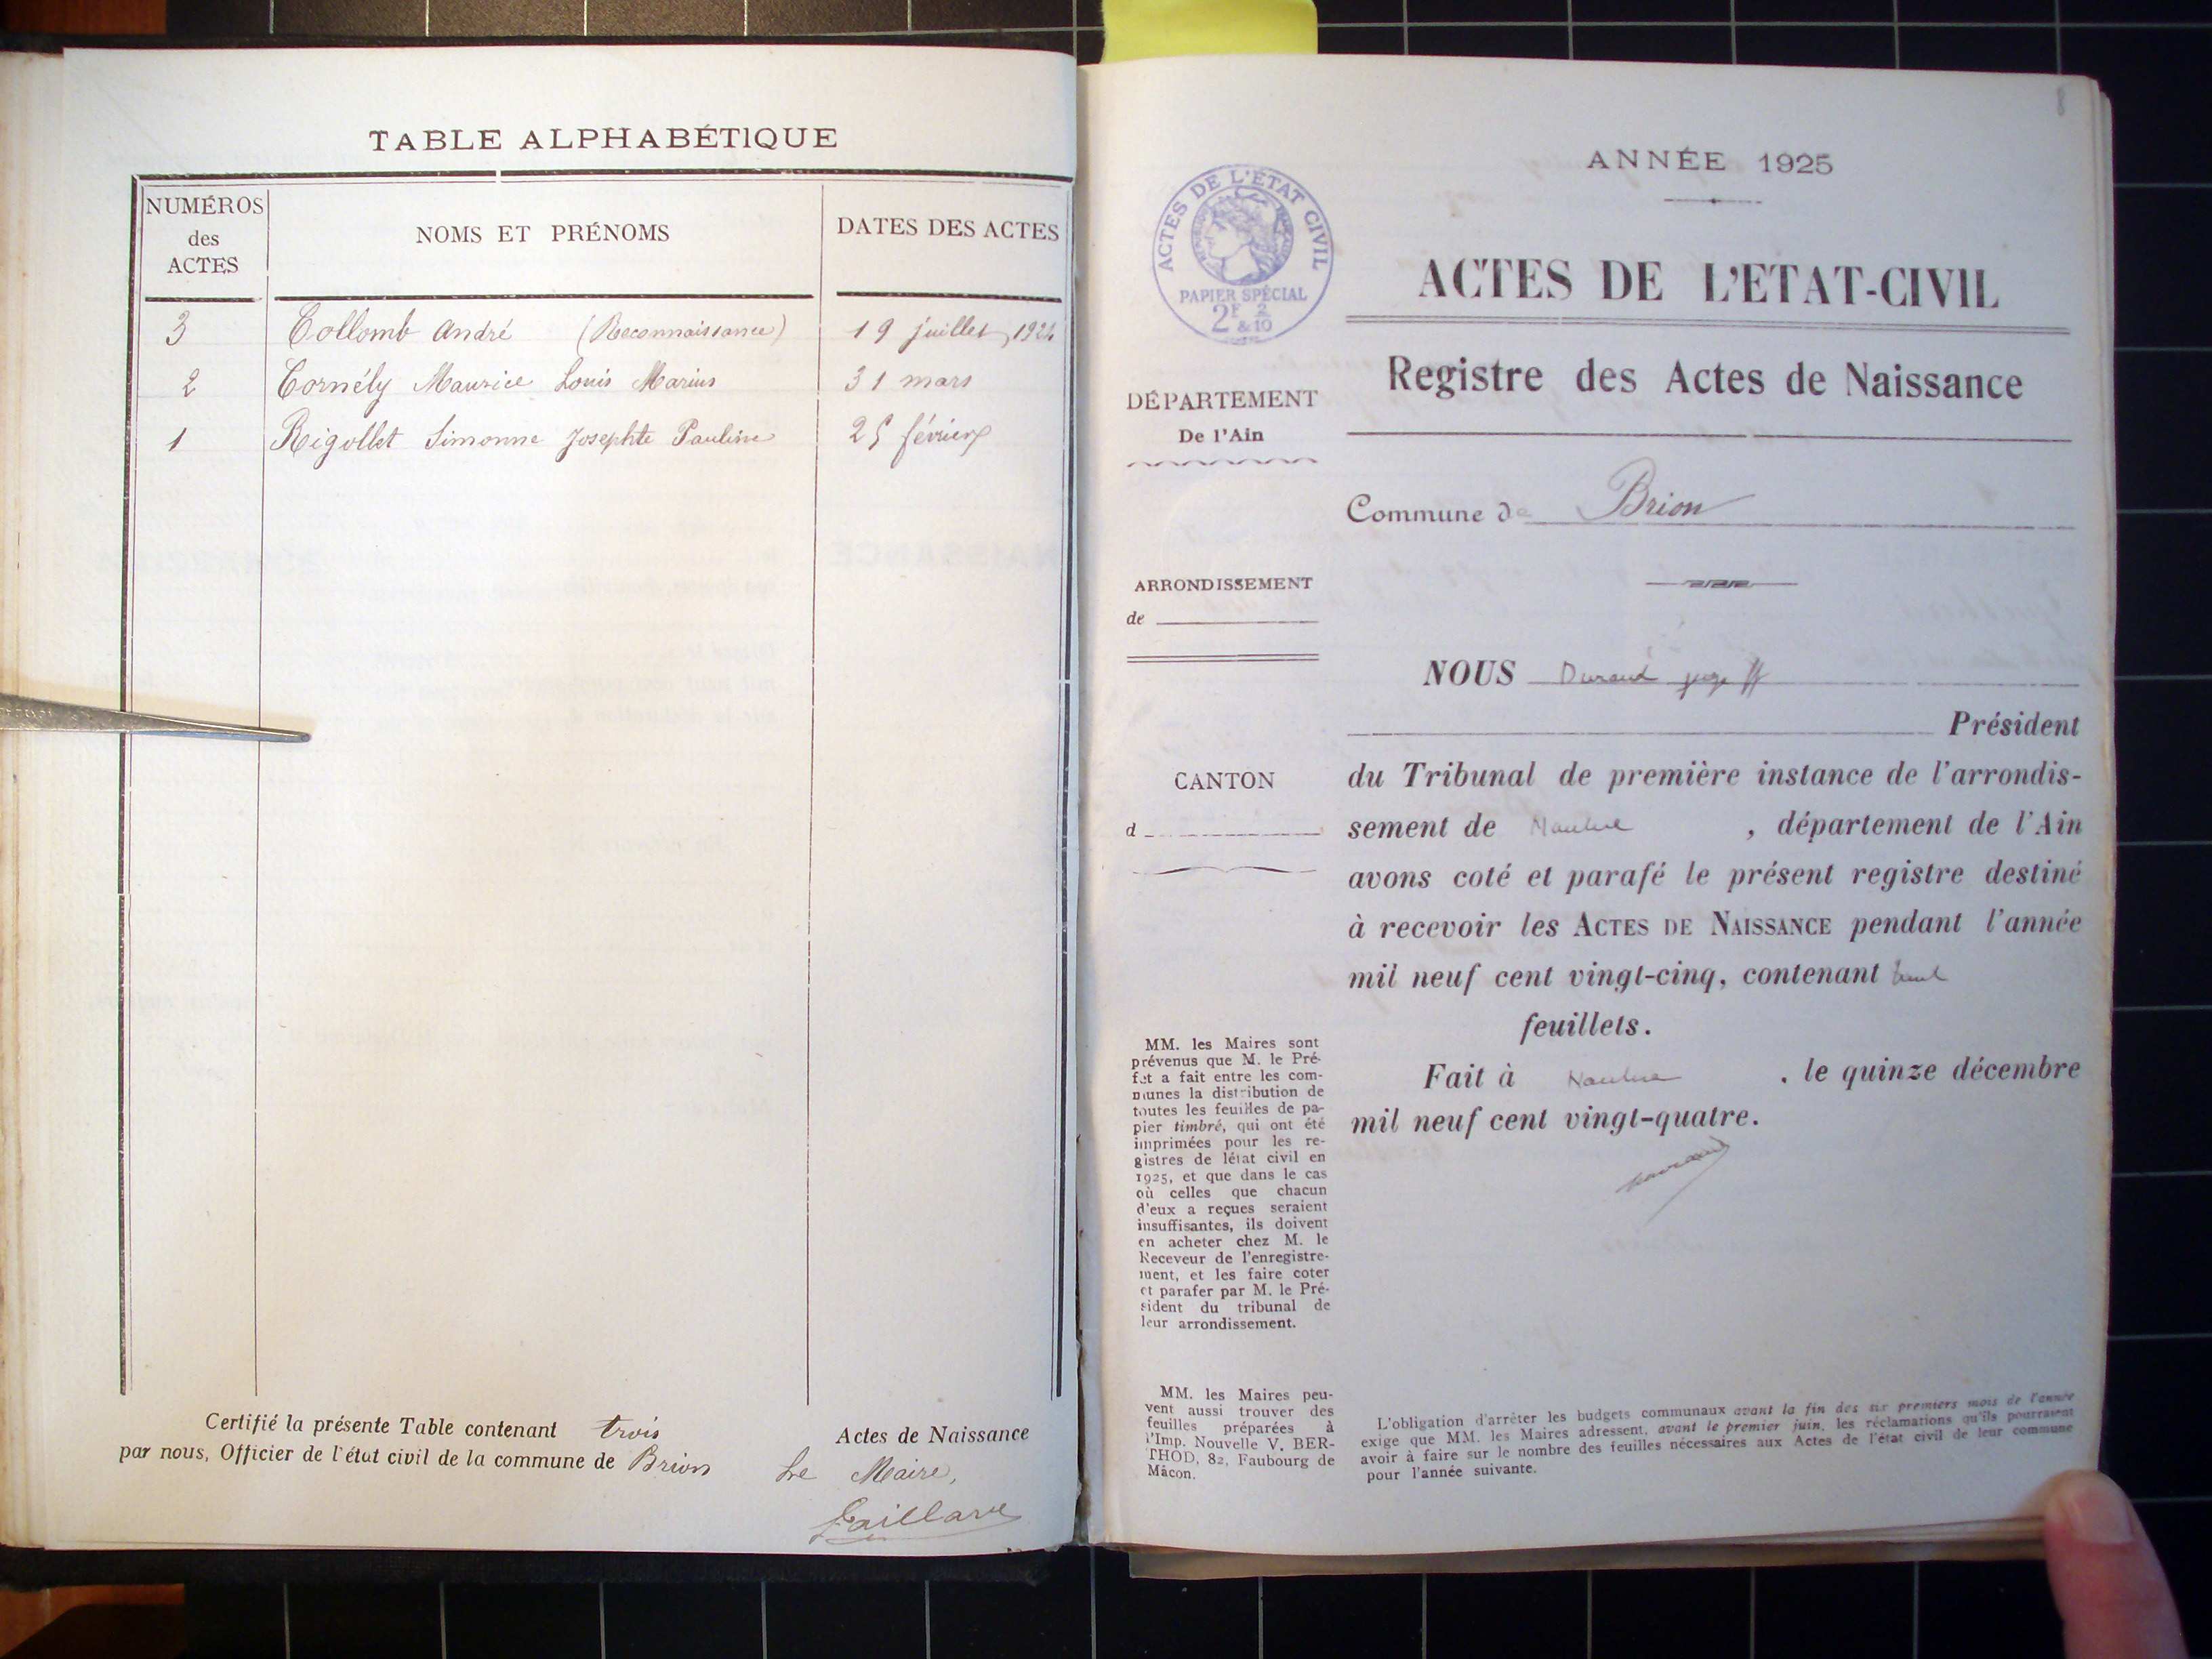 TABLE ALPHABÉTIQUE
NUMÉROS
des
ACTES
NOMS ET PRÉNOMS
DATES DES ACTES
3 Collomb André (Reconnaissance) 19 juillet 1924
2 Cornély Maurice Louis Marius 31 mars
1 Rigollet Simonne Josephte Pauline 25 février
Certifié la présente Table contenant trois Actes de Naissance
par nous, Officier de l'état civil de la commune de Brion Le Maire,
Gaillard
8
ANNÉE 1925
ACTES DE L'ÉTAT CIVIL
PAPIER SPÉCIAL
2F 2
&10
ACTES DE L'ETAT-CIVIL
Registre des Actes de Naissance
DÉPARTEMENT
De l'Ain
Commune de Brion
ARRONDISSEMENT
de
CANTON
d
NOUS Durand juge ff
Président
du Tribunal de première instance de l'arrondis-
sement de Nantua , département de l'Ain
avons coté et parafé le présent registre destiné
à recevoir les ACTES DE NAISSANCE pendant l'année
mil neuf cent vingt-cinq, contenant huit
feuillets.
Fait à Nantua , le quinze décembre
mil neuf cent vingt-quatre.
Durand
MM. les Maires sont
prévenus que M. le Pré-
fet a fait entre les com-
munes la distribution de
toutes les feuilles de pa-
pier timbré, qui ont été
imprimées pour les re-
gistres de létat civil en
1925, et que dans le cas
où celles que chacun
d'eux a reçues seraient
insuffisantes, ils doivent
en acheter chez M. le
Receveur de l'enregistre-
ment, et les faire coter
et parafer par M. le Pré-
sident du tribunal de
leur arrondissement.
MM. les Maires peu-
vent aussi trouver des
feuilles préparées à
l'Imp. Nouvelle V. BER-
THOD, 82, Faubourg de
Mâcon.
L'obligation d'arrêter les budgets communaux avant la fin des six premiers mois de l'année
exige que MM. les Maires adressent, avant le premier juin, les réclamations qu'ils pourraient
avoir à faire sur le nombre des feuilles nécessaires aux Actes de l'état civil de leur commune
pour l'année suivante.